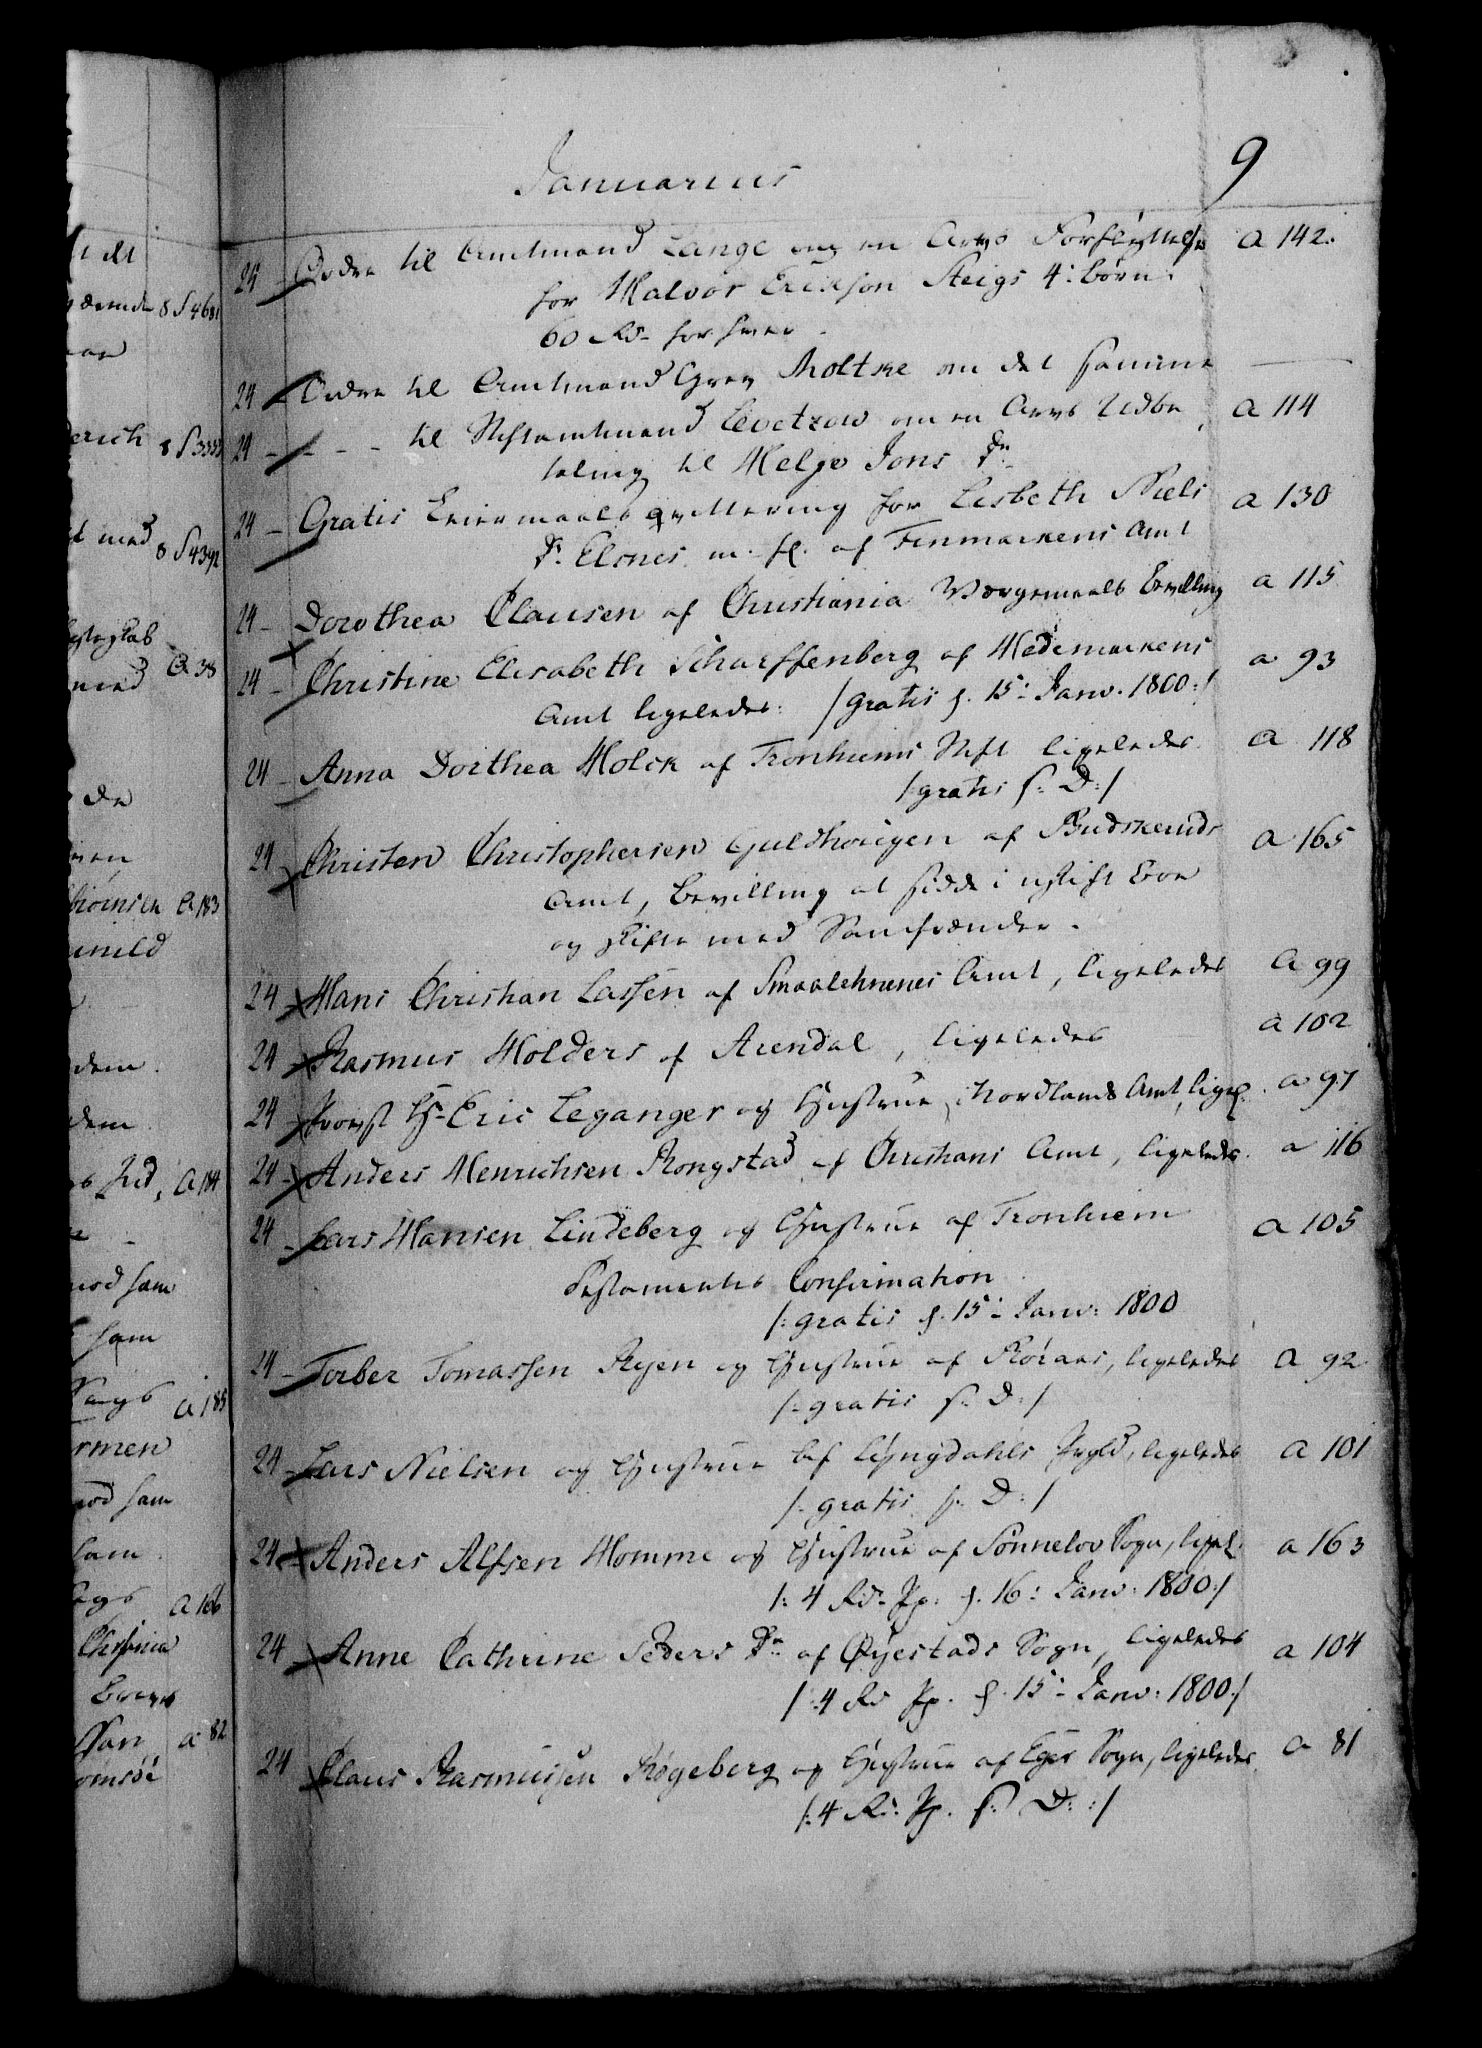 Januarius
9
24 Ordre til Amtmand Lange om en Arvs Forflyttelse a 142.
for Halvor Erichson Steigs 4: børn.
60 Rd. for hver.
24 Ordre til Amtmand Grev Moltke om det samme
24 - - - til Stiftamtmand Levetzow om en Arvs Udbe a 114
taling til Helge Jons Dr.
24 - Gratis Leiermaals qvittering for Lisbeth Niels a 130
Dr. Elsnes m. fl. af Finmarkens Amt
24 - Dorothea Clausen af Christiania Værgemaals Bevilling a 115
24 - Christine Elisabeth Scharffenberg af Hedemarkens a 93
Amt ligeledes: /gratis f. 15: Janv. 1800:/
24 - Anna Dorthea Holck af Tronhiems Stift ligeledes a 118
/:gratis s: D:/
24 Christen Christophersen Guldhougen af Budskeruds a 165
Amt, Bevilling at sidde i uskift Boe
og skifte med Samfrænder.
24 - Hans Christian Lassen af Smaalehnenes Amt, ligeledes a 99
24 Rasmus Holders af Arendal, ligeledes a 102
24 Provst Hr. Eric Leganger og Hustrue, Nordlands Amt, ligel. a 97
24 - Anders Henrichsen Kongstad af Christians Amt, ligeledes. a 116
24 - Lars Hansen Lindeberg og Hustrue af Tronhiem a 105
Testamentes Confirmation
/: gratis f. 15: Janv: 1800
24 - Torber Tomassen Ryen og Hustrue af Røraas, ligeledes a 92
/: gratis s: D:/
24 - Lars Nielsen og Hustrue af Lyngdahls Prgld, ligeledes a 101
/: gratis s: D:/
24 - Anders Alfsen Homme og Hustrue af Sønnelov Sogn, ligel. a 163
/: 4 Rd. Pp. f. 16: Janv: 1800:/
24 Anne Cathrine Peders Dr. af Øyestads Sogn, ligeledes a 104
/: 4 Rd Pp. f. 15: Janv: 1800:/
24 Claus Rasmussen Røgeberg og Hustrue af Eger Sogn, ligeledes a 81
/: 4 Rd. Pp. s: D: :/